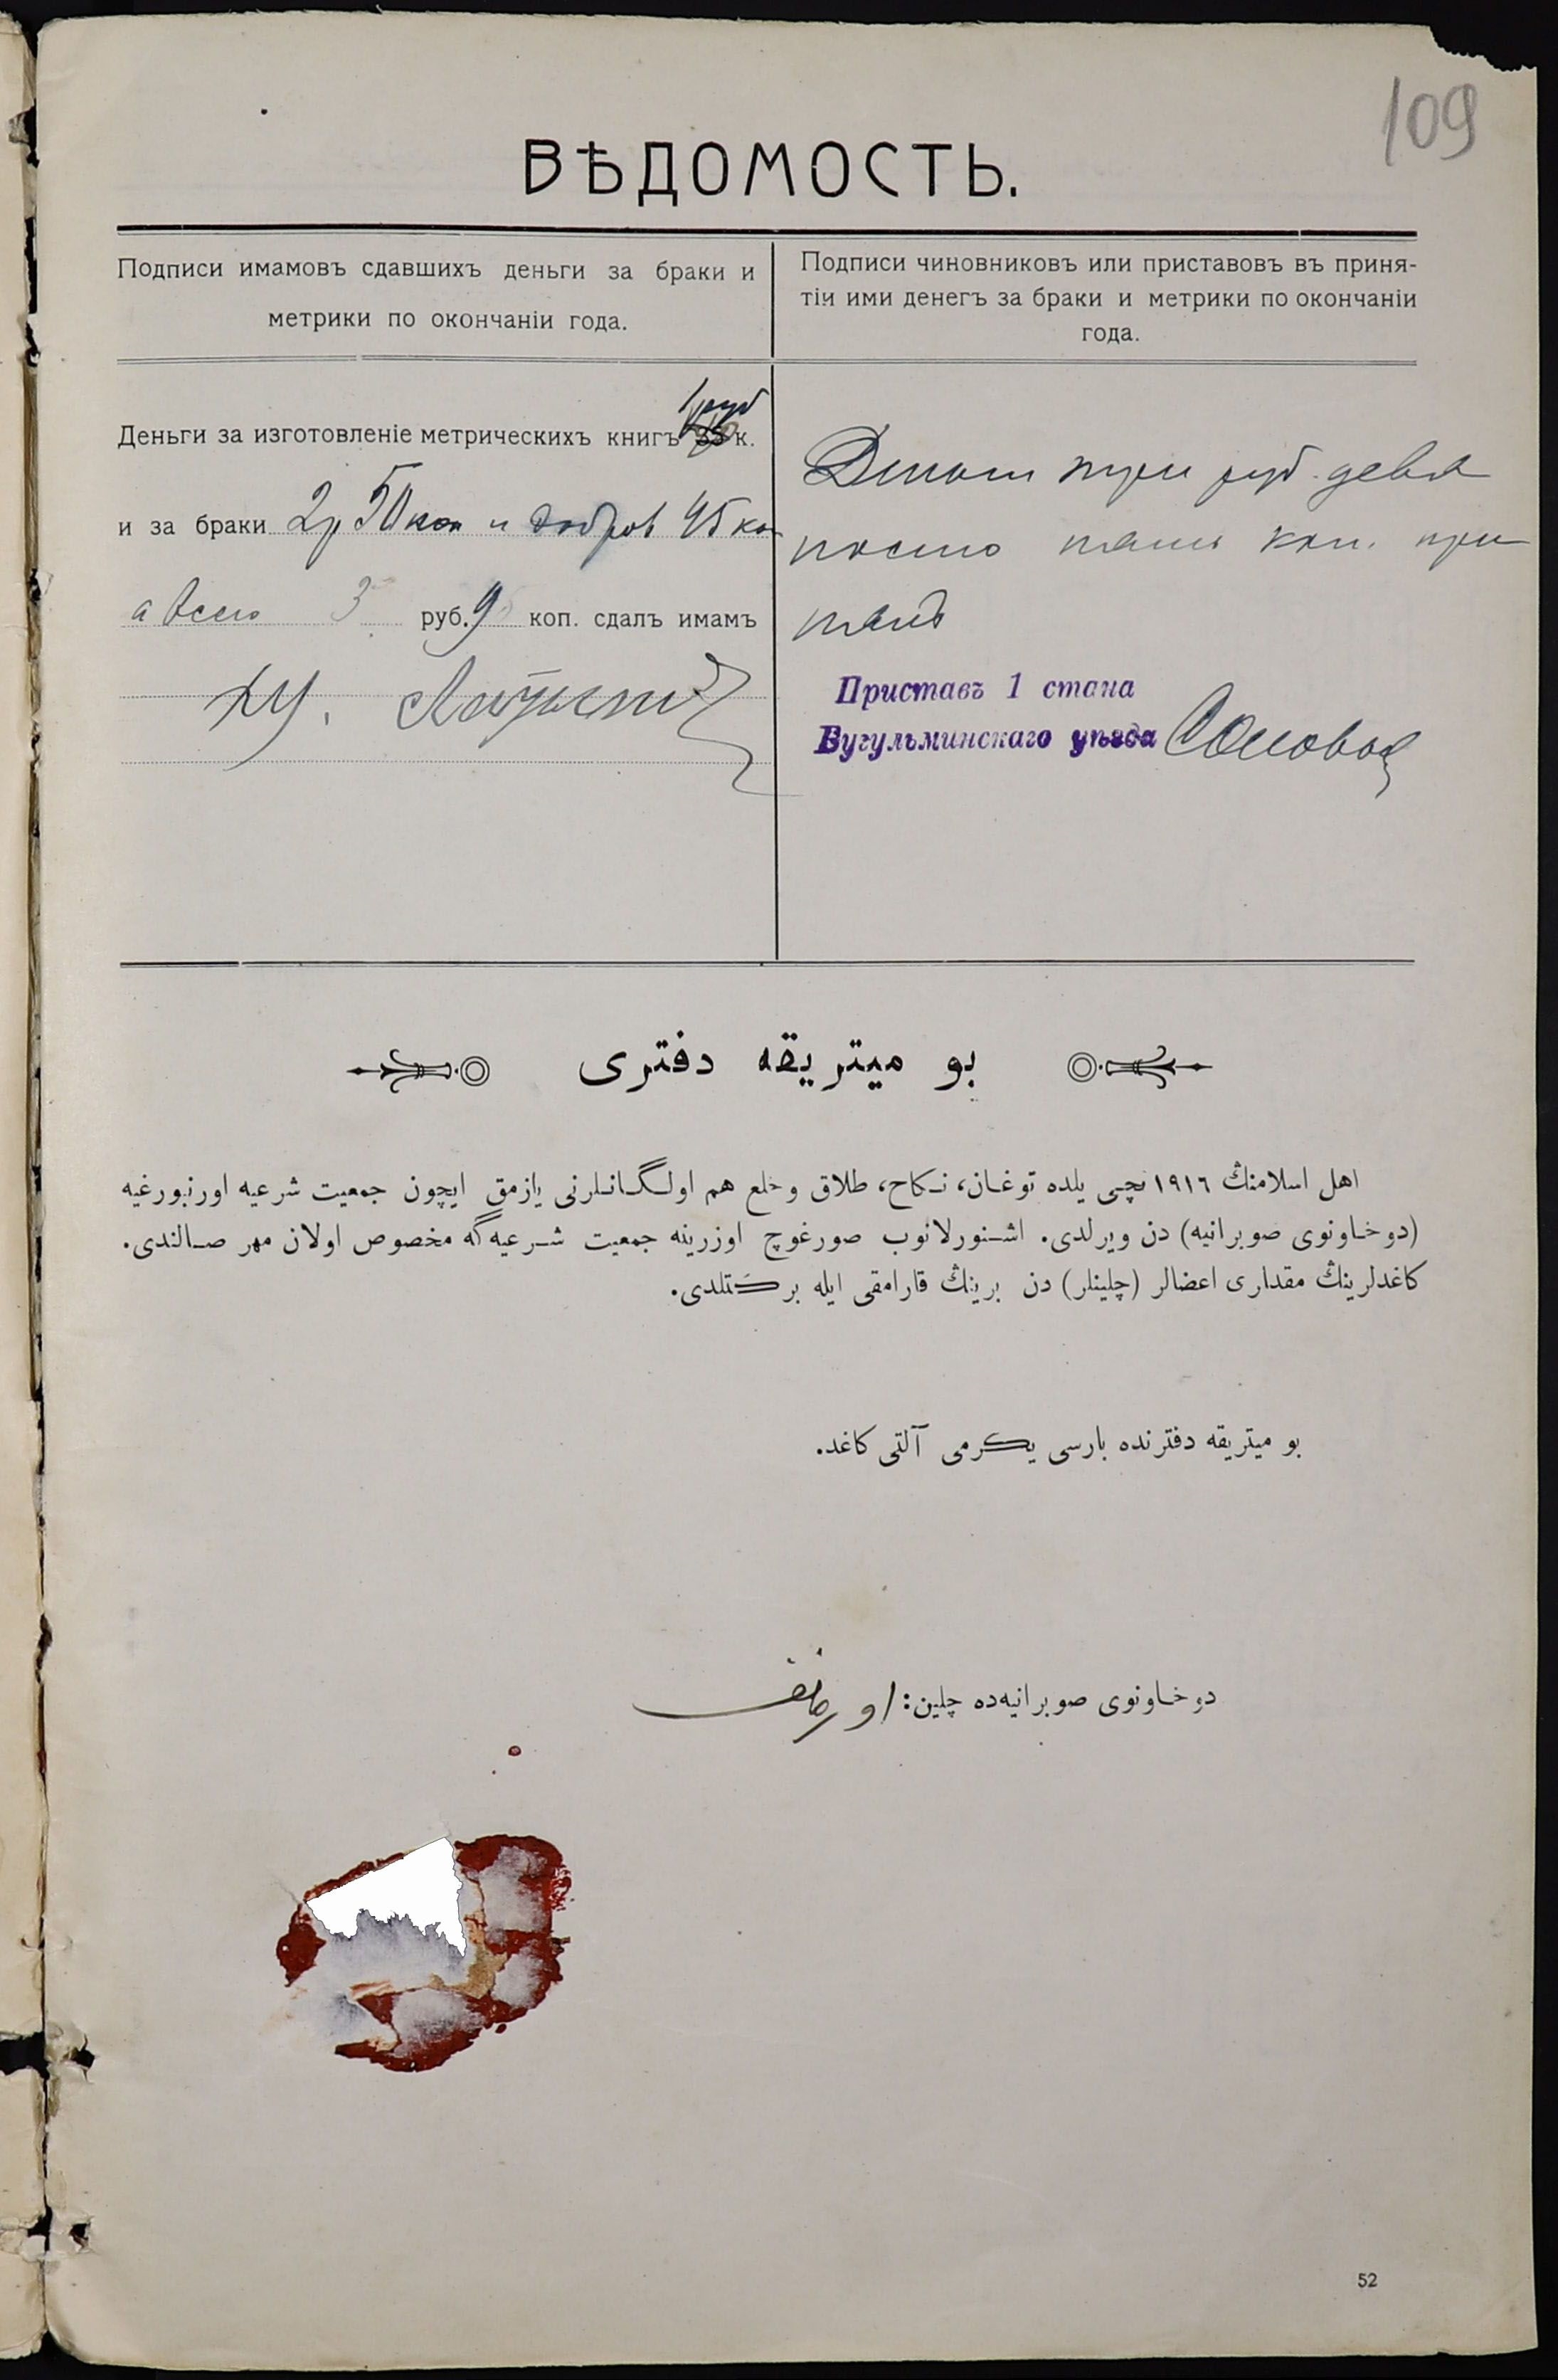 109
ВѢДОМОСТЬ.
Подписи имамовъ сдавшихъ деньги за браки и
метрики по окончаніи года.
Подписи чиновниковъ или приставовъ въ приня-
тіи ими денегъ за браки и метрики по окончаніи
года.
1 руб
Деньги за изготовленіе метрическихъ книгъ к.
и за браки 2р 50 коп и 45 коп
а всего 3 руб. 95 коп. сдалъ имамъ
Деньги три руб. девя
носто пять коп. при
нялъ
Приставъ 1 стана
Бугульминскаго уѣзда
بو ميتريقه دفترى
اهل اسلامنڭ ١٩١٦ نچى يلده توغان، نكاح، طلاق وخلع هم اولگانلرنى يازمق ايچون جمعيت شرعيه اورنبورغيه
(دوخاونوى صوبرانيه) دن ويرلدى. اشنورلانوب صورغوچ اوزرينه جمعيت شرعيه‌گه مخصوص اولان مهر صالندى.
كاغدلرينڭ مقدارى اعضالر (چلينلر) دن برينڭ قارامقى ايله بركتلدى.
بو ميتريقه دفترنده بارسى يكرمى آلتى كاغد.
دوخاونوى صوبرانيه‌ده چلين:
52